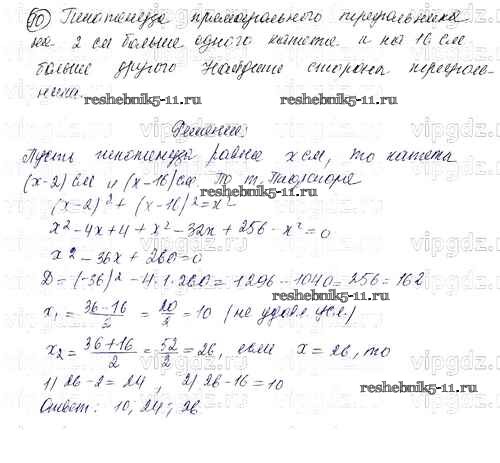 10 Гипотенуза прямоугольного треугольника
на 2 см больше одного катета и на 16 см
больше другого Найдите стороны треуголь-
ника.
reshebnik5-11.ru reshebnik5-11.ru
Решение:
Пусть гипотенуза равна x см, то катеты
(x-2) см и (x-16) см По т. Пифагора
reshebnik5-11.ru
(x-2)² + (x-16)² = x²
x² - 4x + 4 + x² - 32x + 256 - x² = 0
x² - 36x + 260 = 0
D = (-36)² - 4·1·260 = 1296 - 1040 = 256 = 16²
reshebnik5-11.ru
x₁ = (36-16)/2 = 20/2 = 10 (не удовл. усл.)
x₂ = (36+16)/2 = 52/2 = 26, если x = 26, то
1) 26 - 2 = 24, 2) 26 - 16 = 10
reshebnik5-11.ru
Ответ: 10; 24; 26
vipgdz.ru